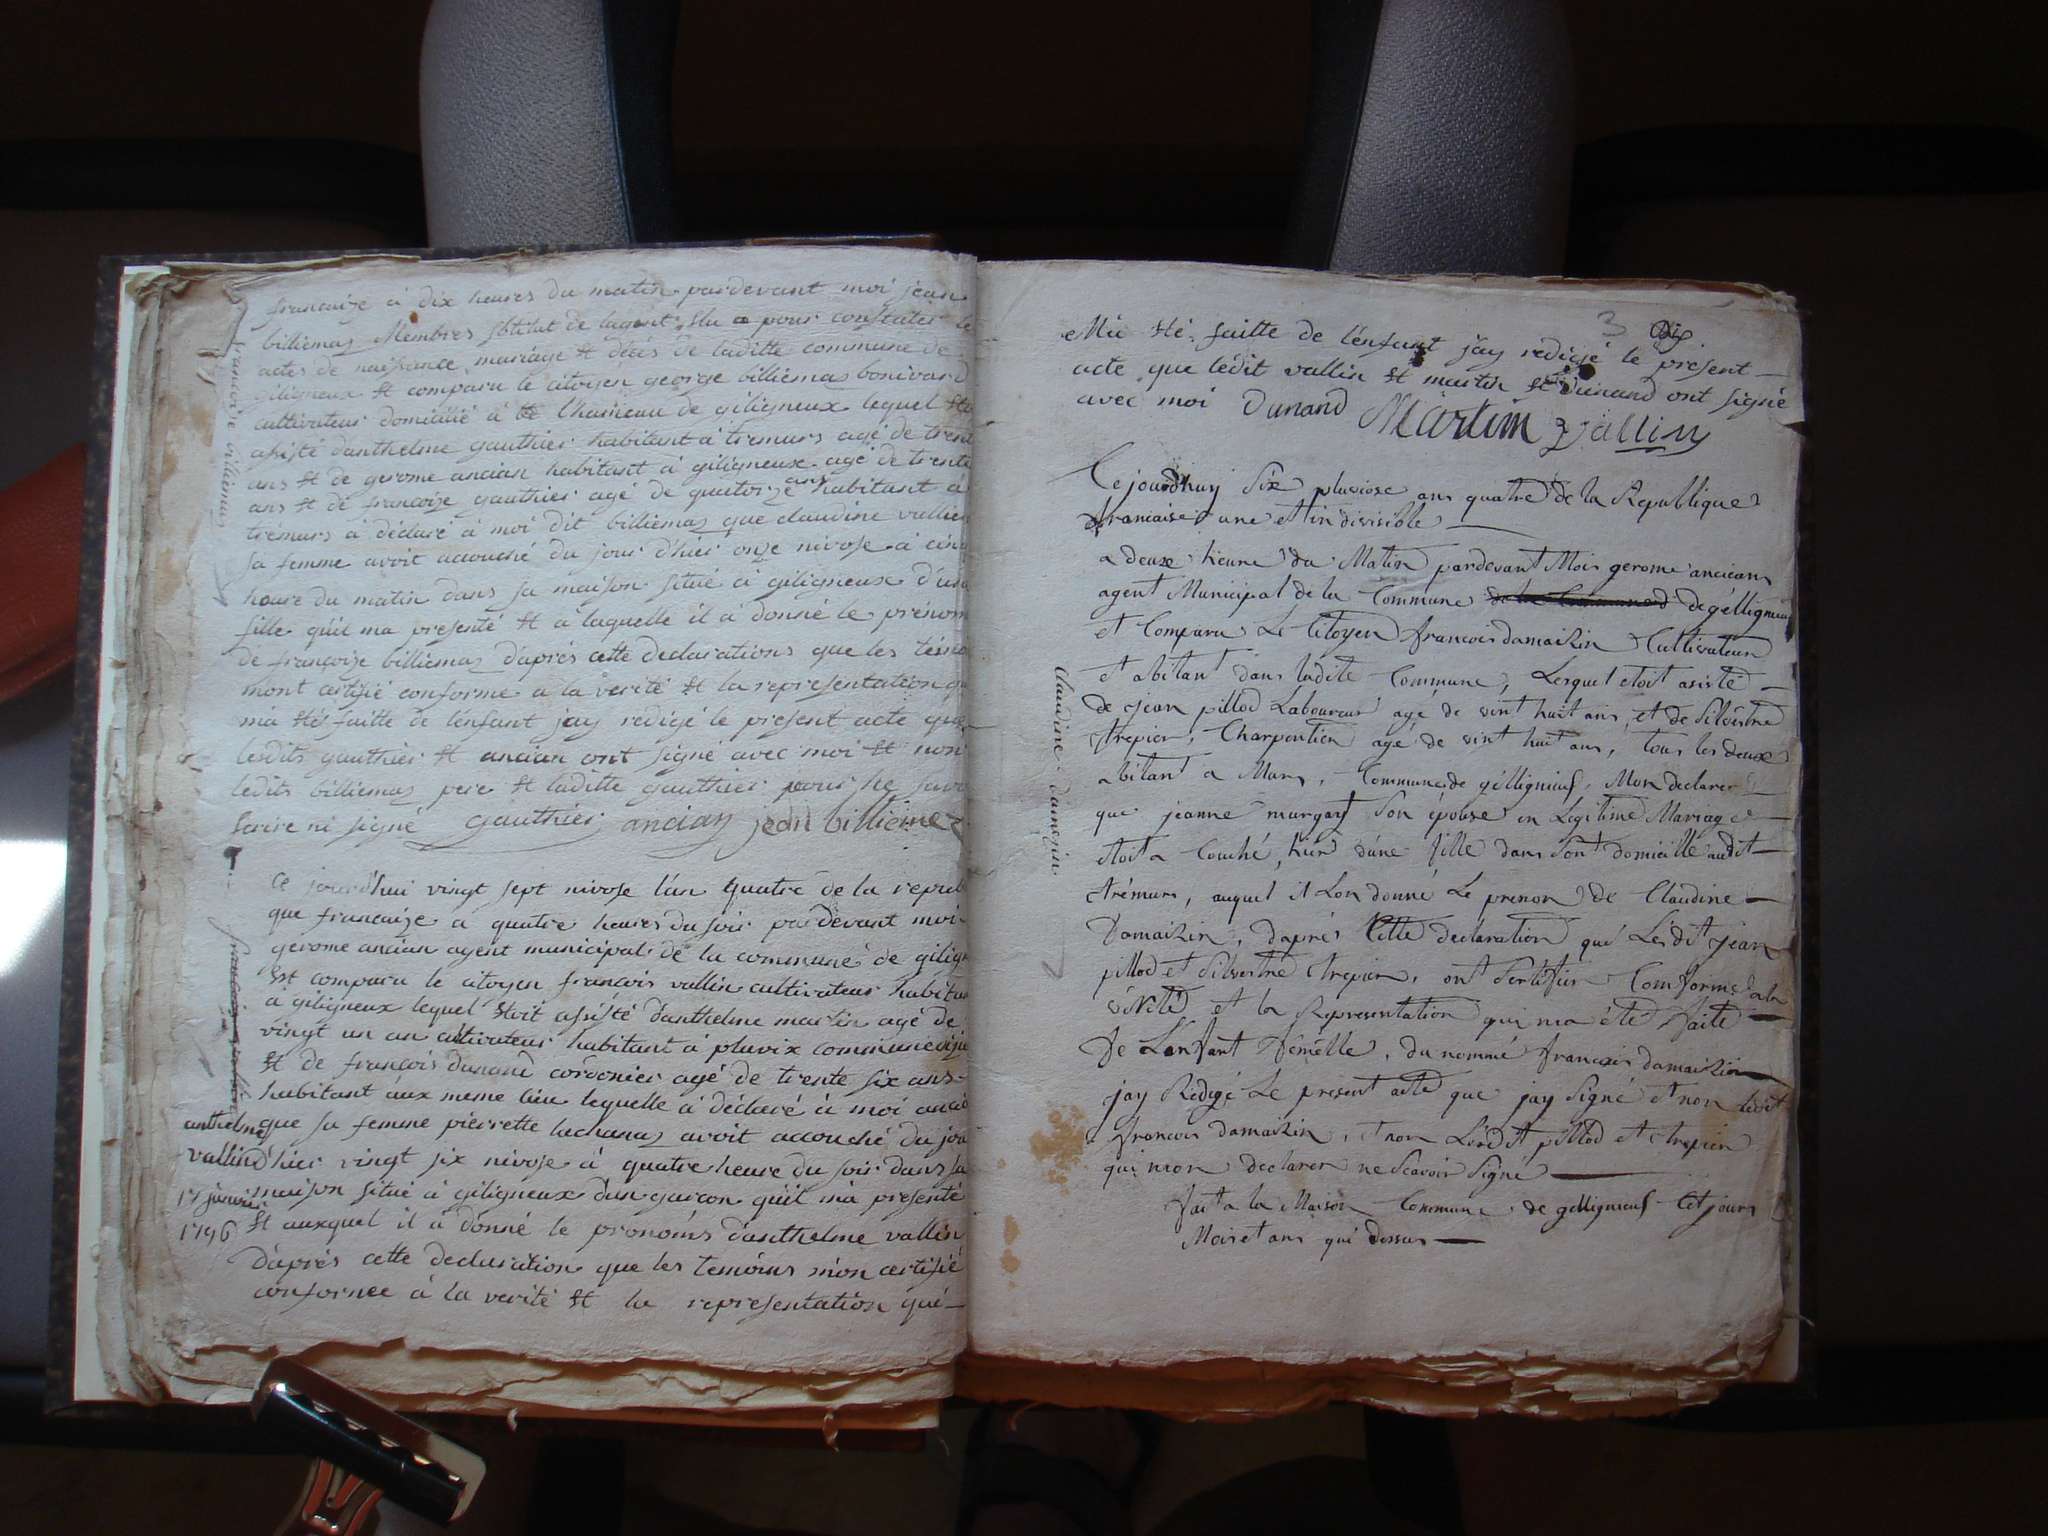 françaize à dix heures du matin pardevant moi jean
billiemaz Membres sbtitut de lagent élu pour constater le
actes de naissance mariage et décès de laditte commune de
giligneux et comparu le citoyen george billiemaz bonivard
cultivateur domicilié à l'hameau de giligneux lequel
assisté danthelme gauthier habitant à tremurs agé de trent
ans et de gerome ancian habitant à giligneux agé de trente
ans et de françoize gauthier agé de quatorze ans habitant à
trémurs à déclaré à moi dit billiemaz que claudine vallien
sa femme avoit accouché du jour d'hier onze nivose à cinq
heure du matin dans sa maison situé à giligneux d'une
fille quil ma presenté et a laquelle il à donné le prénom
de françoize billiemaz daprès cette declarations que les témo
mont certifié conforme a la verité et la representation qu
ma été faitte de lénfant jay redigé le present acte que
lesdits gauthier et ancian ont signé avec moi et non
ledits billiemaz pere et laditte gauthier pour ne savo
écrire ni signé gauthier ancian jean billiemaz
françoize billiemaz
Ce jourd'hui vingt sept nivose l'an quatre de la republi
que françaize a quatre heures du soir pardevant moi
gerome ancian agent municipal de la commune de gilign
est comparu le citoyen françois vallin cultivateur habitan
à giligneux lequel étoit assisté danthelme martin agé de
vingt un an cultivateur habitant à pluvix commune
et de françois dunand cordonier agé de trente six ans
habitant aux meme lieu lequelle à déclaré à moi ancia
que sa femme pierrette lachanaz avoit accouché du jou
d'hier vingt six nivose à quatre heure du soir dans sa
maison situé à giligneux dun garçon quil mà presenté
et auxquel il à donné le pronoms danthelme vallin
daprès cette declaration que les temoins mon certifié
conformee à la verité et la representation qui
françois vallin
anthelme
vallin
17 janvier
1796
3
Dix
Mà été faitte de lénfant jay rédigé le présent
acte que lédit vallin et martin et dunand ont signé
avec moi Dunand Martin vallin
Cejourdhuy Six pluviose ans quatre de la Republique
francaise une et indivisible
a deux heure du Matin pardevant Moi gerome ancian
agent Municipal de la Commune de la Commune de gélligneux
et Comparu Le Citoyen francois damaizin Cultivateur
et abitant dans ladite Commune, Lesquel etoit asisté
de jean pillod Laboureur agé de vint huit ans, et de Silvestre
trepier, Charpentier agé de vint huit ans, tous les deux
abitant a Murs, Commune de gélligneuf, Mon declarer
que jeanne margary Son épouse en Legitime Mariage
etoit a Couché, hier dune fille dans Son domicille audit
trémurs, auquel il Lon donné Le prenon de Claudine
Damaizin, daprés Cette declaration qué Lesdit jean
pillod et Silvestre trepier, ont Sertifier Comforme ala
vérité et la Representation qui ma été faite
De Lenfant fémélle, du nommé francois damaizin
jay Rédigé Le present acte que jay Signé et non ledit
francois damaizin, et non Lesdit pillod et trepier
qui mon declarer ne Scavoir Signé
fait a la Maison Commune de gélligneuf Cet jours
Mois et ans qué dessus
claudine damezin